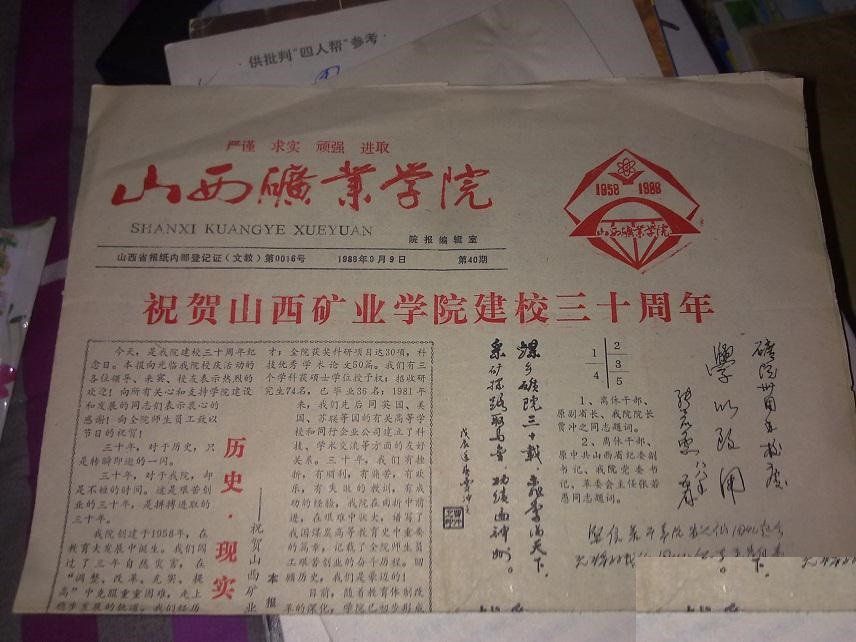 供批判“四人帮”参考
严谨 求实 顽强 进取
山西礦業学院
SHANXI KUANGYE XUEYUAN
院报编辑室
山西省报纸内部登记证(文教)第0016号 1988年9月9日 第40期
1958 1988
山西礦業学院
祝贺山西矿业学院建校三十周年
今天,是我院建校三十周年纪
念日。本报向光临我院校庆活动的
各位领导、来宾、校友表示热烈的
欢迎!向所有关心和支持学院建设
和发展的同志们表示衷心的
感谢!向全院师生员工致以
节日的祝贺!
三十年,对于历史,只
是转瞬即逝的一闪。
三十年,对于我院,却
是不短的时间。这是艰苦创
业的三十年,是拼搏进取的
三十年。
我院创建于1958年,在
教育大发展中诞生。我们闯
过了三年自然灾害,在
“调整、改革、充实、提
高”中克服重重困难,走上
稳步发展的轨道。我们经历
历史·现实
——祝贺山西矿业
本报
才;全院获奖科研项目达30项,科
技优秀学术论文50篇。我们有三
个学科获硕士学位授予权;招收研
究生74名,已毕业36名;1981年
来,我们先后同英国、美
国、苏联等国的有关高等学
校和同行企业公司建立了科
技、学术交流等方面的友好
关系。三十年,我们有挫
折,有顺利,有痛苦,有欢
乐,有失败的教训,有成
功的经验,我院在曲折中前
进,在艰难中壮大,谱写了
我国煤炭高等教育史中重要
的篇章,记载了全院师生员
工艰苦创业的奋斗历程。回
顾历史,我们是豪迈的!
目前,随着教育体制改
革的深化,学院已初步形成
煤乡礦院三十载,桃李满天下。
采矿探路驱马当,功绩画神州。
1 2
3
4 5
1、离休干部、
原副省长、我院院长
贾冲之同志题词。
2、离休干部、
原中共山西省纪委副
书记、我院党委书
记、革委会主任张若
愚同志题词。
礦院卅周年校庆
學以致用